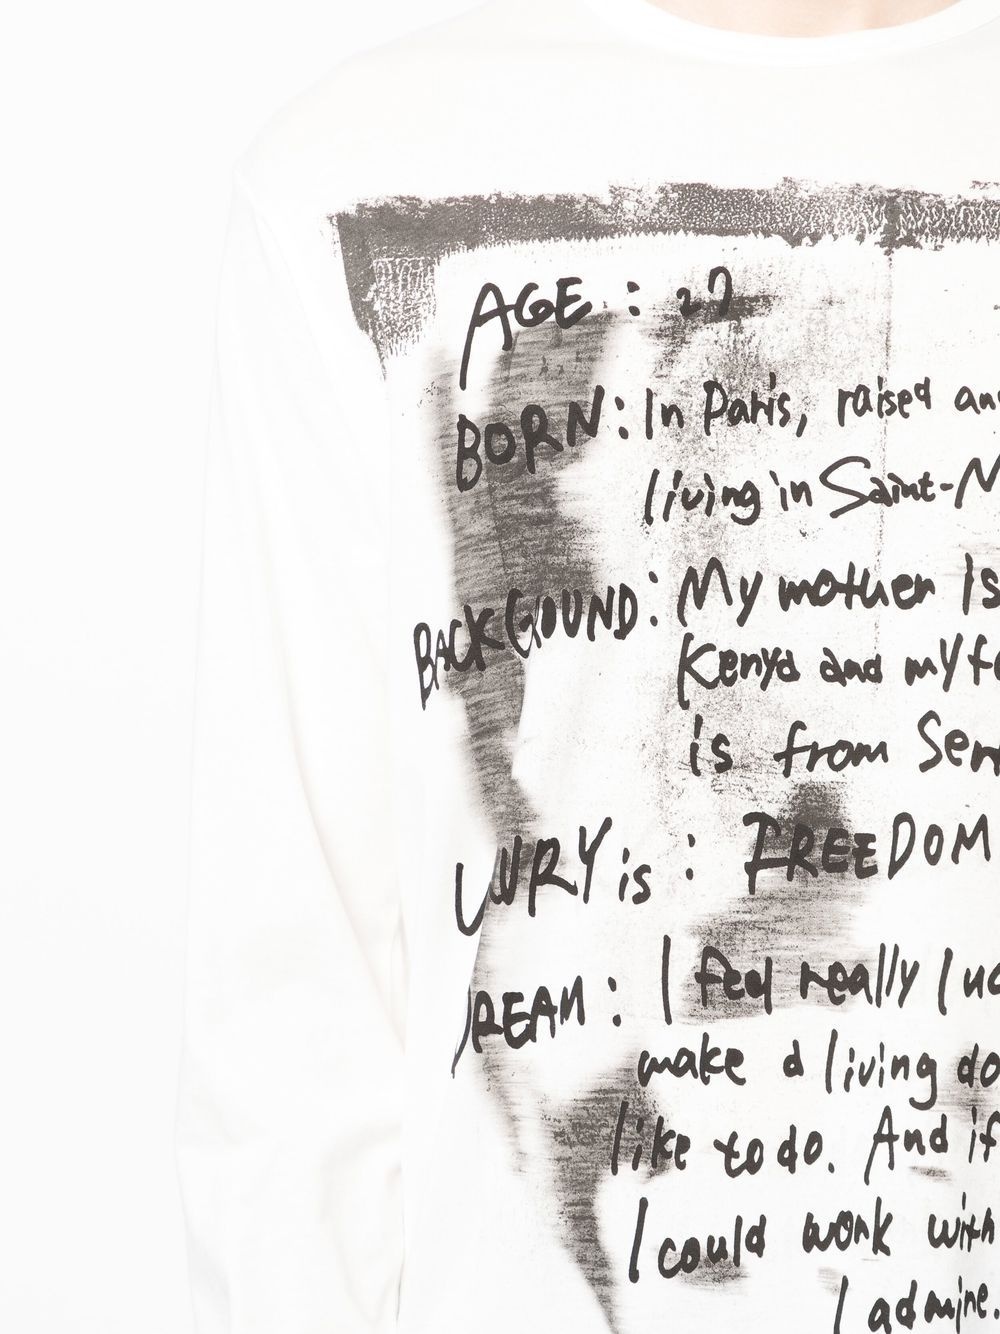 AGE : 27
BORN : In Paris, raised an
living in Saint-N
BACKGOUND : My mother Is
Kenya and my f
is from Sen
UXURY is : FREEDOM
DREAM : I feel really luc
make a living do
like to do. And if
I could work with
I admire.